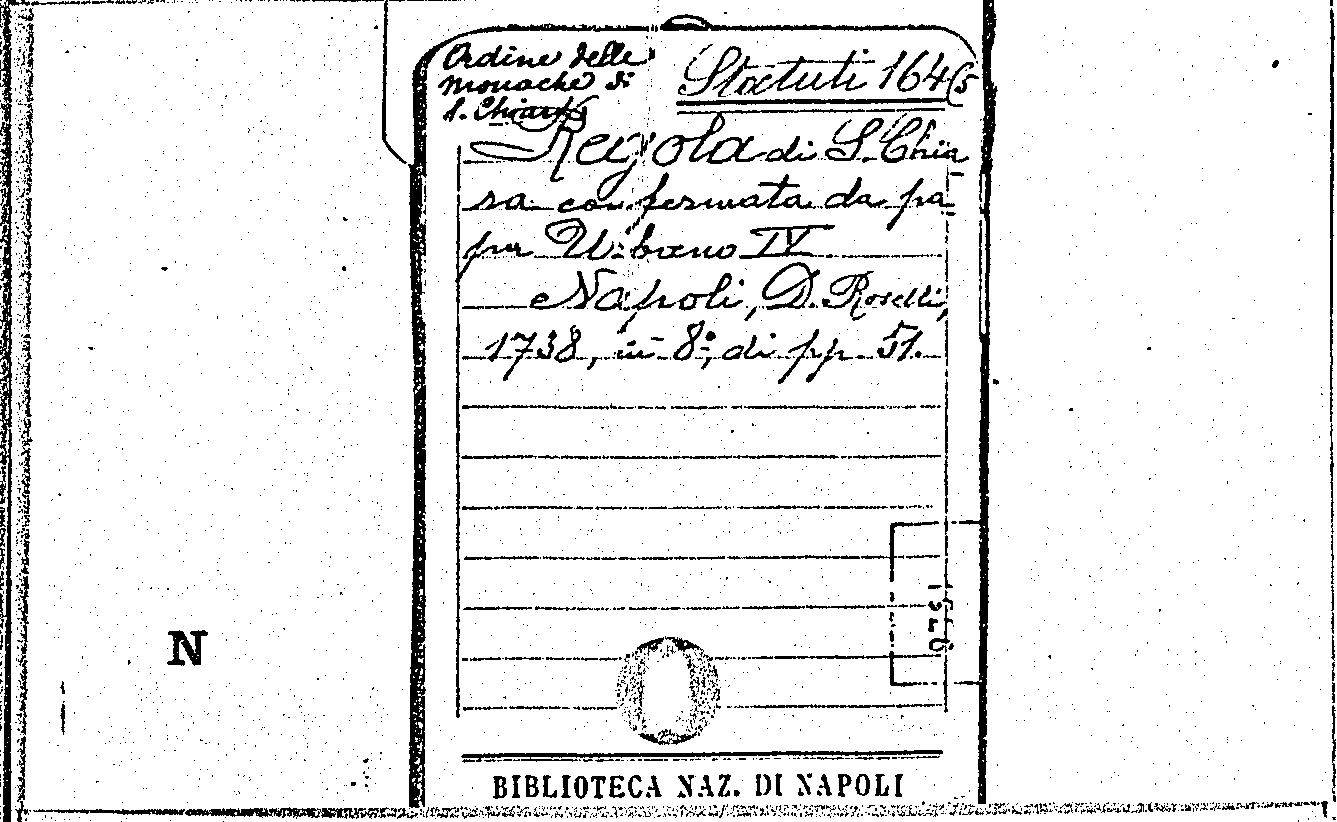 Ordine delle
monache di
S. Chiara
Statuti 164(5
Regola di S. Chia-
ra confermata da pa-
pa Urbano IV
Napoli, D. Roselli,
1738, in 8º, di pp. 51.
N
BIBLIOTECA NAZ. DI NAPOLI